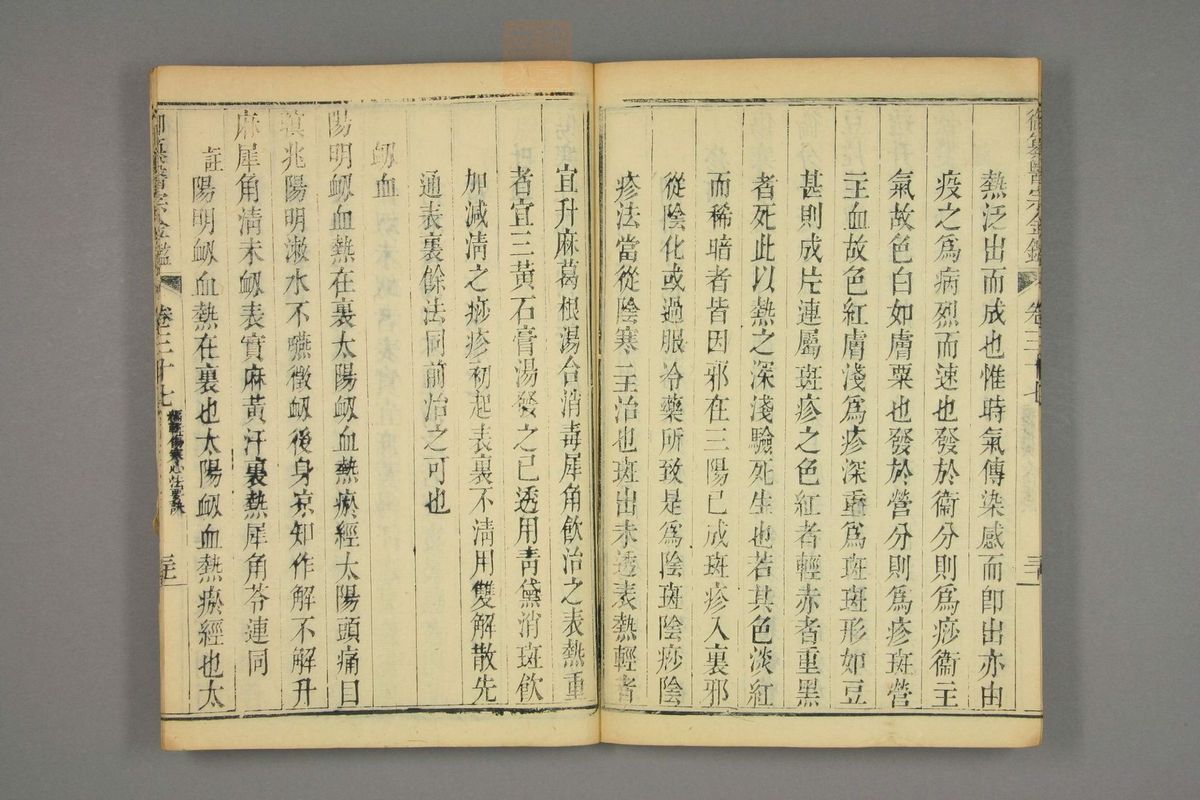 熱泛出而成也惟時氣傳染感而即出亦由
疫之為病烈而速也發於衞分則為痧衞主
氣故色白如膚粟也發於營分則為疹斑營
主血故色紅膚淺為疹深重為斑斑形如豆
甚則成片連屬斑疹之色紅者輕赤者重黑
者死此以熱之深淺驗死生也若其色淡紅
而稀暗者皆因邪在三陽已成斑疹入裏邪
從陰化或過服冷藥所致是為陰斑陰痧陰
疹法當從陰寒主治也斑出未透表熱輕者
宜升麻葛根湯合消毒犀角飲治之表熱重
者宜三黃石膏湯發之已透用青黛消斑飲
加減清之痧疹初起表裏不清用雙解散先
通表裏餘法同前治之可也
衂血
陽明衂血熱在裏太陽衂血熱瘀經太陽頭痛目
瞑兆陽明漱水不嚥徵衂後身凉知作解不解升
麻犀角清未衂表實麻黃汗裏熱犀角芩連同
註陽明衂血熱在裏也太陽衂血熱瘀經也太
御纂醫宗金鑑
卷三十七